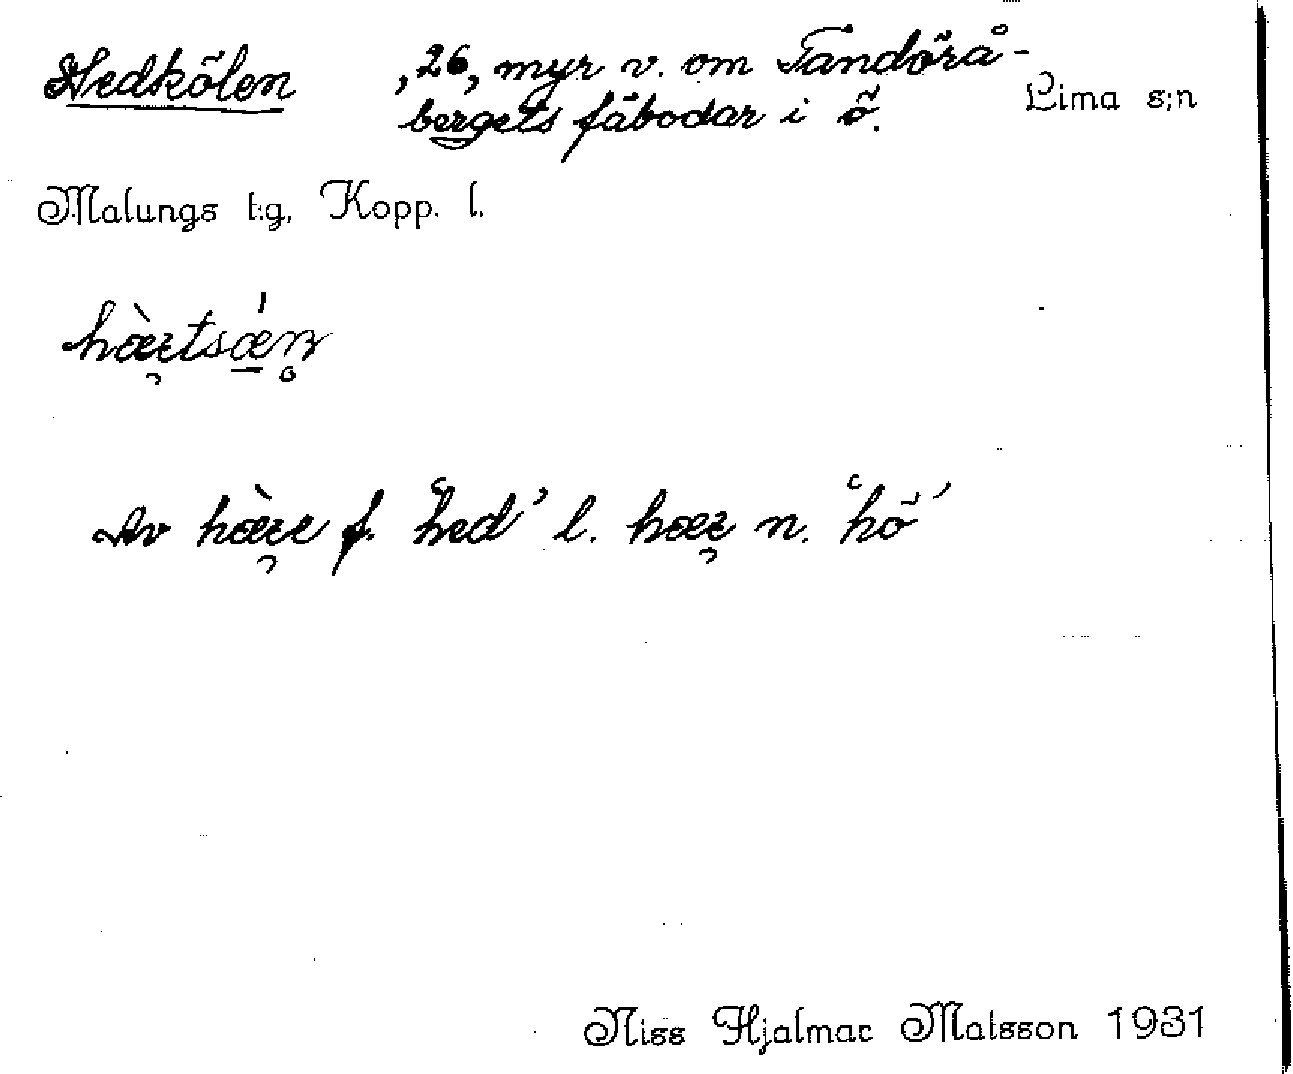 Hedkölen ,26, myr v. om Tandörå-
bergets fäbodar i ö. Lima s:n
Malungs t:g, Kopp. l.
hæ̀ɪtsǽn̥
Av hæ̀ɪe f. ‘hed’ l. hæɪ n. ‘hö’
Niss Hjalmar Matsson 1931